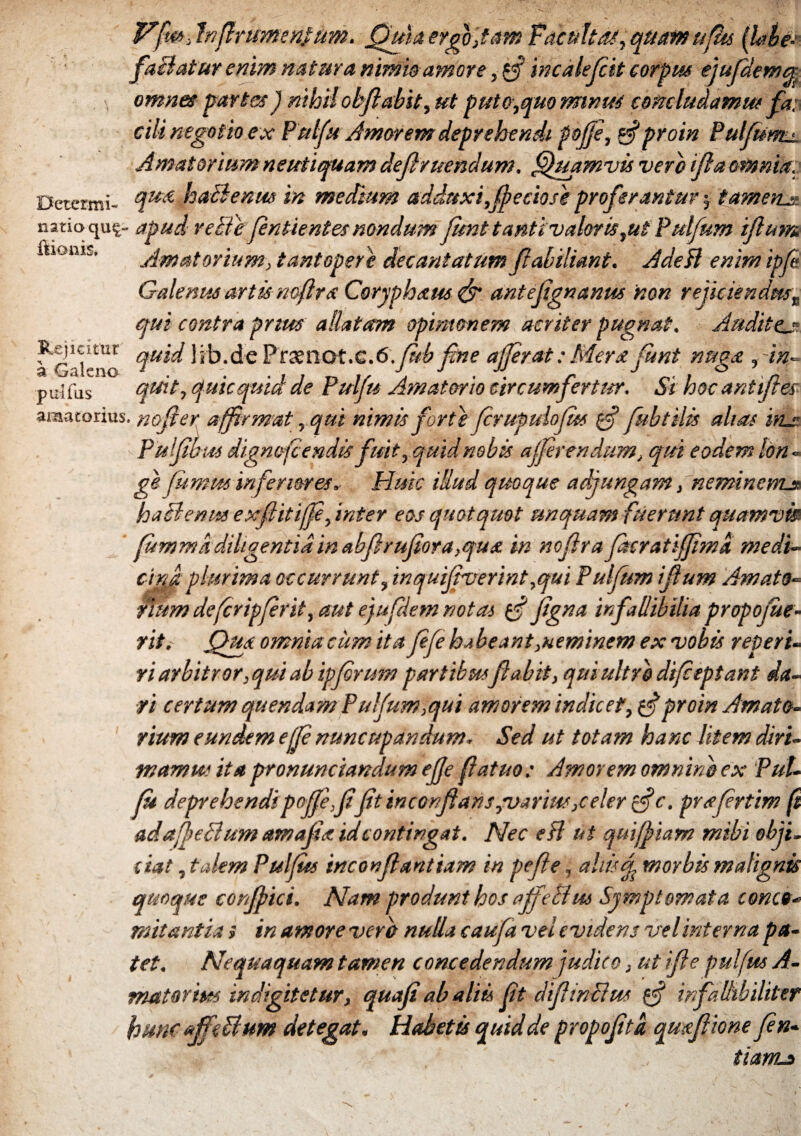 Vſus, Inſtrumentum. Quia ergo, tam Facultas, quam uſus (labe-
factatur enim natura nimio amore, & incaleſcit corpus ejuſdemq;
omnes partes) nihil obſtabit, ut puto, quo minus concludamus fa-
cili negotio ex Pulſu Amorem deprehendi poſſe, & proin Pulſum
Amatorium neutiquam deſtruendum. Quamvis vero iſta omnia,
Determi-
natio quę-
ſtionis.
quæ hactenus in medium adduxi, ſpeciose proferantur; tamen
apud recte ſentientes nondum ſunt tanti valoris, ut Pulſum iſtum
Amatorium, tantopere decantatum ſtabiliant. Adeſt enim ipſe
Galenus artis noſtræ Coryphæus & anteſignanus non rejiciendus,
qui contra prius allatam opinionem acriter pugnat. Audite
Rejicitur
à Galeno
pulſus
amatorius.
quid lib. de Prænot. c. 6. ſub fine aſſerat: Meræ ſunt nugæ, in-
quit, quicquid de Pulſu Amatorio circumfertur. Si hoc antiſtes
noſter affirmat, qui nimis forte ſcrupuloſus & ſubtilis alias in
Pulſibus dignoſcendis fuit, quid nobis aſſerendum, qui eodem lon-
ge ſumus inferiores. Huic illud quoque adjungam, neminem
hactenus exſtitiſſe, inter eos quotquot unquam fuerunt quamvis
ſumma diligentia in abſtruſiora, quæ in noſtra ſacratiſſima medi-
cina plurima occurrunt, inquiſiverint, qui Pulſum iſtum Amato-
rium deſcripſerit, aut ejuſdem notas & ſigna infallibilia propoſue-
rit. Quæ omnia cum ita ſeſe habeant, neminem ex vobis reperi-
ri arbitror, qui ab ipſorum partibus ſtabit, qui ultro diſceptant da-
ri certum quendam Pulſum, qui amorem indicet, & proin Amato-
rium eundem eſſe nuncupandum. Sed ut totam hanc litem diri-
mamus ita pronunciandum eſſe ſtatuo: Amorem omnino ex Pul-
ſu deprehendi poſſe, ſi ſit inconſtans, varius, celer &c. præſertim ſi
ad aſpectum amaſiæ id contingat. Nec eſt ut quiſpiam mihi obji-
ciat, talem Pulſus inconſtantiam in peſte, aliisq; morbis malignis
quoque conſpici. Nam produnt hos affectus Symptomata conco-
mitantia; in amore vero nulla cauſa vel evidens vel interna pa-
tet. Nequaquam tamen concedendum judico, ut iſte pulſus A-
matorius indigitetur, quaſi ab aliis ſit diſtinctus & infallibiliter
hunc affectum detegat. Habetis quid de propoſita quæſtione ſen-
tiam